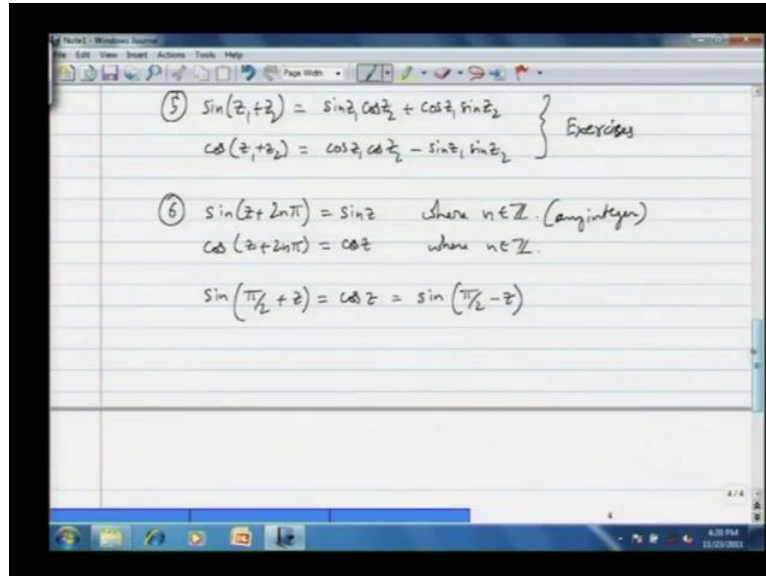 Note1 - Windows Journal
File Edit View Insert Actions Tools Help
Page Width
⑤ sin(z₁+z₂) = sinz₁ cosz₂ + cosz₁ sinz₂
cos(z₁+z₂) = cosz₁ cosz₂ − sinz₁ sinz₂
} Exercises
⑥ sin(z+2nπ) = sinz where n∈ℤ. (any integer)
cos(z+2nπ) = cosz where n∈ℤ.
sin(π/2 + z) = cosz = sin(π/2 − z)
4/4
4
6:20 PM
11/23/2011